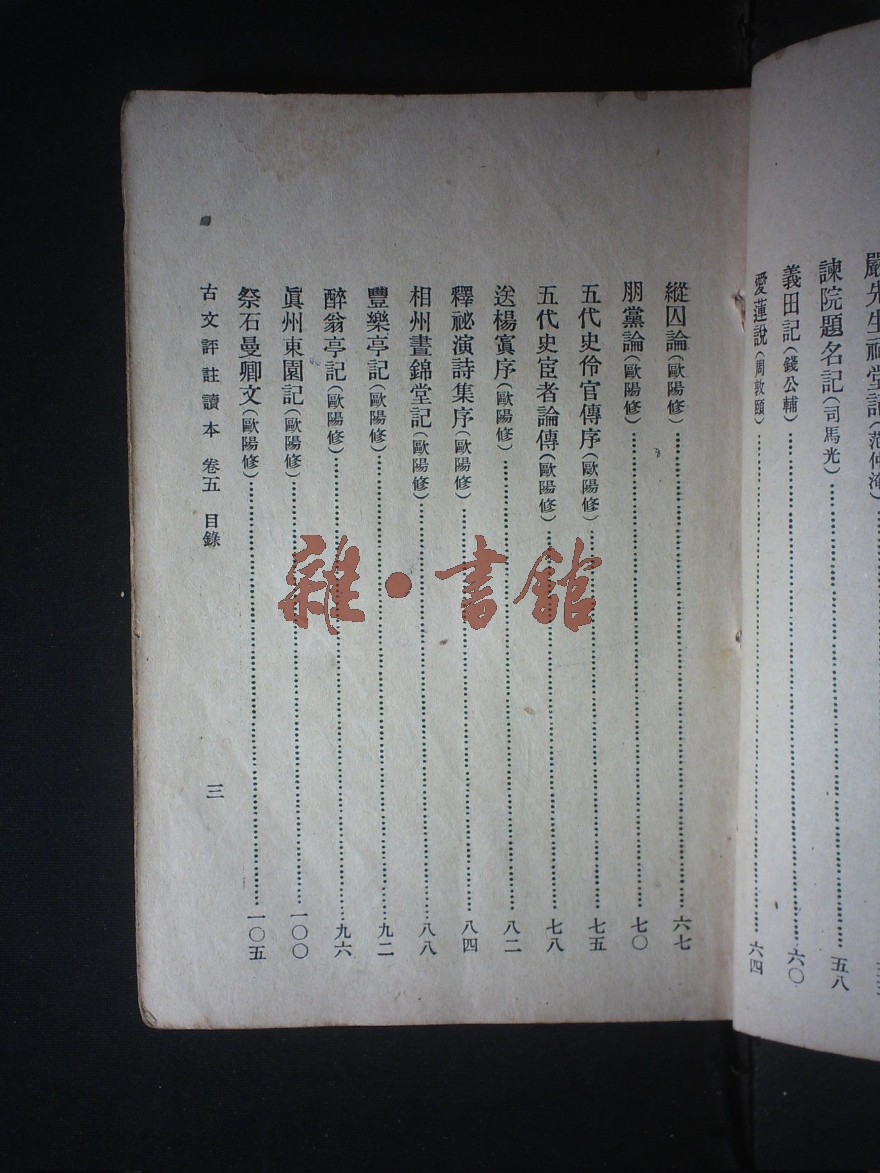 嚴先生祠堂記(范仲淹)
諫院題名記(司馬光)……五八
義田記(錢公輔)……六〇
愛蓮說(周敦頤)……六四
縱囚論(歐陽修)……六七
朋黨論(歐陽修)……七〇
五代史伶官傳序(歐陽修)……七五
五代史宦者論傳(歐陽修)……七八
送楊寘序(歐陽修)……八二
釋祕演詩集序(歐陽修)……八四
相州晝錦堂記(歐陽修)……八八
豐樂亭記(歐陽修)……九二
醉翁亭記(歐陽修)……九六
眞州東園記(歐陽修)……一〇〇
祭石曼卿文(歐陽修)……一〇五
古文評註讀本 卷五 目錄 三
雜·書館